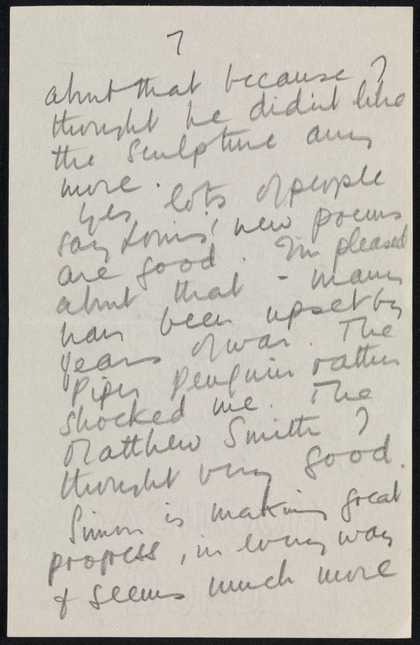 7
about that because I
thought he didn't like
the sculpture any
more.
Yes, lots of people
say Louis' new poems
are good. I'm pleased
about that – many
have been upset by
years of war. The
Piper Penguin rather
shocked me. The
Matthew Smith I
thought very good.
Simon is making great
progress, in every way
& seems much more